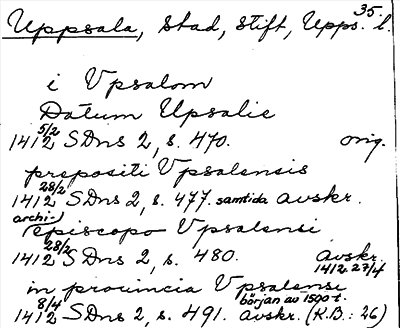 35.
Uppsala, stad, stift, Upps. l.
i Vpsalom
Datum Upsalie
1412 5/2 SDns 2, s. 470. orig.
prepositi Vpsalensis
1412 28/2 SDns 2, s. 477. samtida avskr.
archi-
episcopo Vpsalensi
1412 28/2 SDns 2, s. 480. avskr.
1412 27/4
in prouincia Vpsalensi
1412 8/4 SDns 2, s. 491. början av 1500-t. avskr. (K.B.: 26)